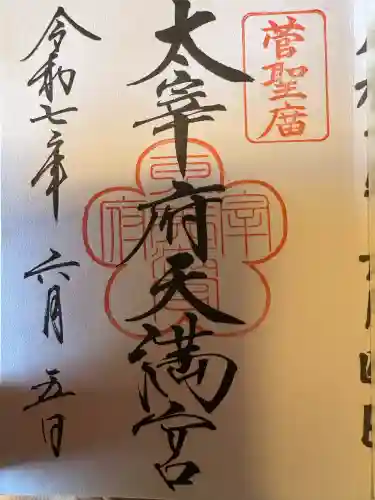 菅聖庿
太宰府天満宮
令和七年 六月 五日